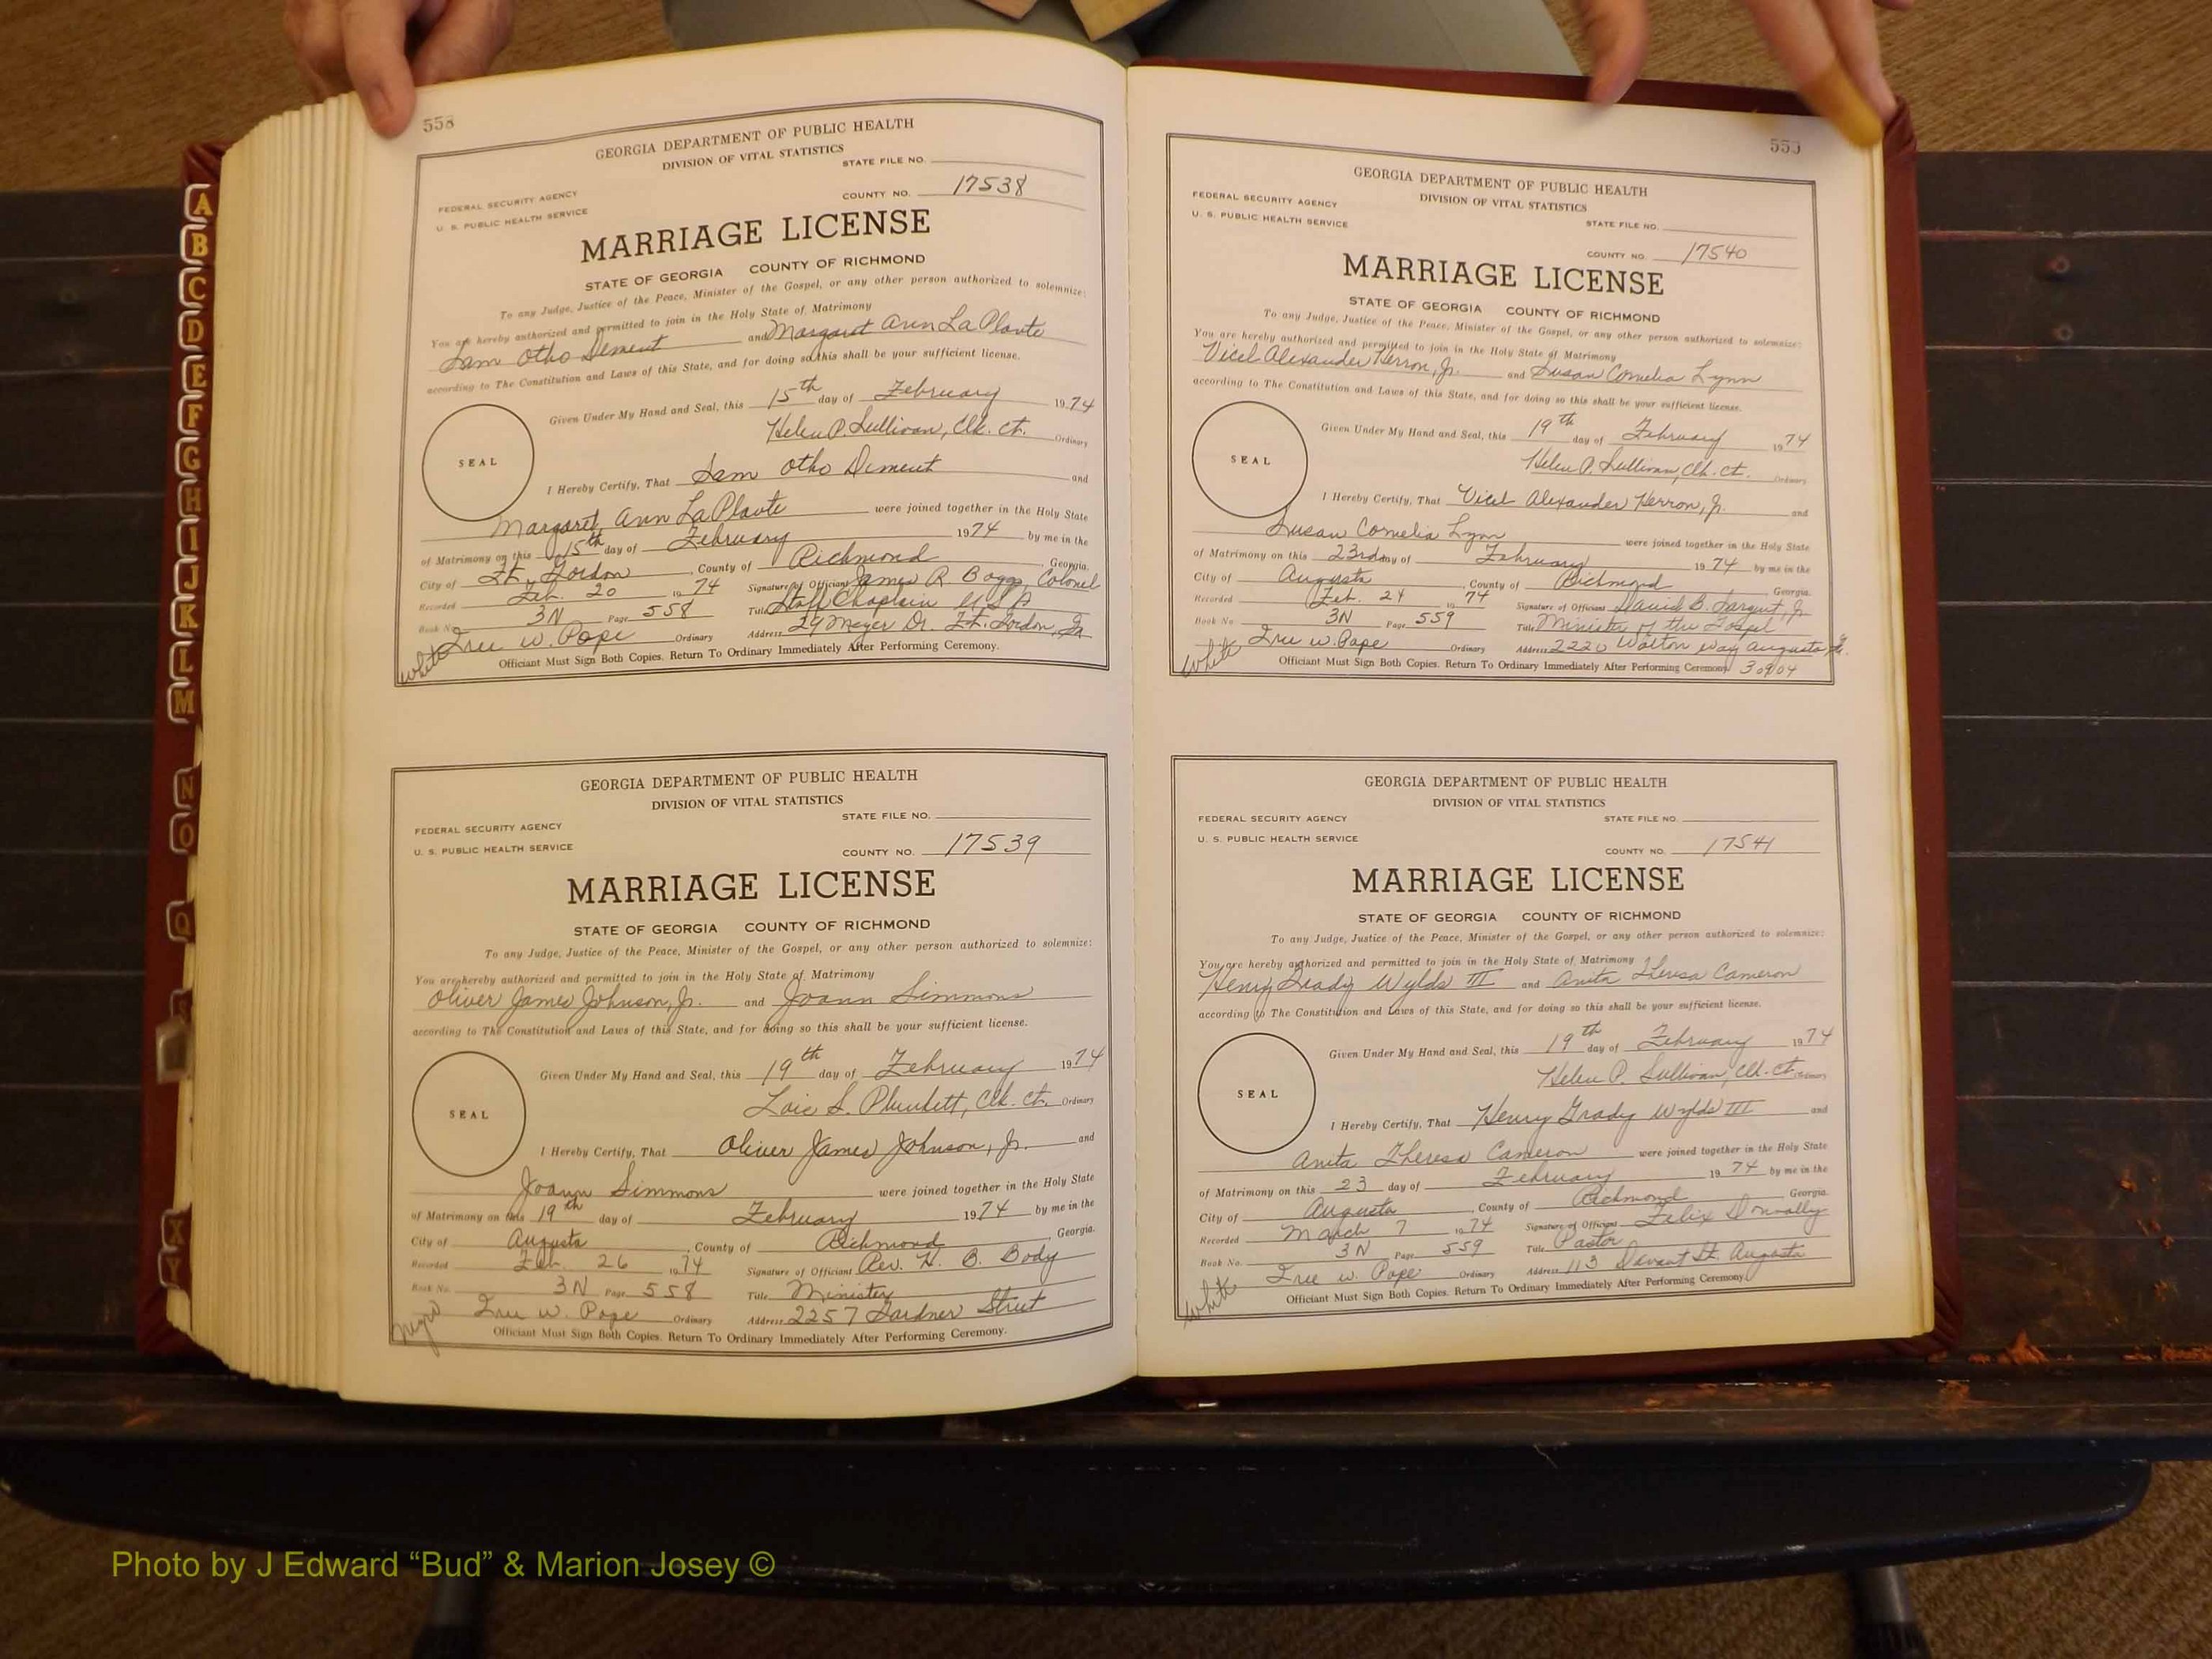 558
GEORGIA DEPARTMENT OF PUBLIC HEALTH
DIVISION OF VITAL STATISTICS
STATE FILE NO.
FEDERAL SECURITY AGENCY
COUNTY NO. 17538
U. S. PUBLIC HEALTH SERVICE
MARRIAGE LICENSE
STATE OF GEORGIA COUNTY OF RICHMOND
To any Judge, Justice of the Peace, Minister of the Gospel, or any other person authorized to solemnize:
You are hereby authorized and permitted to join in the Holy State of Matrimony
Sam Otho Dement and Margaret Ann La Plante
according to The Constitution and Laws of this State, and for doing so this shall be your sufficient license.
Given Under My Hand and Seal, this 15th day of February 1974
Helen P. Sullivan, Clk. Ct. Ordinary
SEAL
I Hereby Certify, That Sam Otho Dement and
Margaret Ann La Plante were joined together in the Holy State
of Matrimony on this 15th day of February 1974 by me in the
City of Ft. Gordon, County of Richmond, Georgia.
Recorded Feb. 20 1974 Signature of Officiant James R. Boggs, Colonel
Book No. 3N Page 558 Title Staff Chaplain USA
Tree W. Pope Ordinary Address 29 Meyer Dr. Ft. Gordon, Ga
Officiant Must Sign Both Copies. Return To Ordinary Immediately After Performing Ceremony.
White
GEORGIA DEPARTMENT OF PUBLIC HEALTH
DIVISION OF VITAL STATISTICS
STATE FILE NO.
FEDERAL SECURITY AGENCY
U. S. PUBLIC HEALTH SERVICE
COUNTY NO. 17539
MARRIAGE LICENSE
STATE OF GEORGIA COUNTY OF RICHMOND
To any Judge, Justice of the Peace, Minister of the Gospel, or any other person authorized to solemnize:
You are hereby authorized and permitted to join in the Holy State of Matrimony
Oliver James Johnson, Jr. and Joann Simmons
according to The Constitution and Laws of this State, and for doing so this shall be your sufficient license.
Given Under My Hand and Seal, this 19th day of February 1974
Lois S. Plunkett, Clk. Ct. Ordinary
SEAL
I Hereby Certify, That Oliver James Johnson, Jr. and
Joann Simmons were joined together in the Holy State
of Matrimony on this 19th day of February 1974 by me in the
City of Augusta, County of Richmond, Georgia.
Recorded Feb. 26 1974 Signature of Officiant Rev. H. B. Body
Book No. 3N Page 558 Title Minister
Tree W. Pope Ordinary Address 2257 Gardner Street
Officiant Must Sign Both Copies. Return To Ordinary Immediately After Performing Ceremony.
Negro
GEORGIA DEPARTMENT OF PUBLIC HEALTH
DIVISION OF VITAL STATISTICS
FEDERAL SECURITY AGENCY
U. S. PUBLIC HEALTH SERVICE
STATE FILE NO.
COUNTY NO. 17540
MARRIAGE LICENSE
STATE OF GEORGIA COUNTY OF RICHMOND
To any Judge, Justice of the Peace, Minister of the Gospel, or any other person authorized to solemnize:
You are hereby authorized and permitted to join in the Holy State of Matrimony
Vicel Alexander Herron, Jr. and Susan Cornelia Lynn
according to The Constitution and Laws of this State, and for doing so this shall be your sufficient license.
Given Under My Hand and Seal, this 19th day of February 1974
Helen P. Sullivan, Clk. Ct. Ordinary
SEAL
I Hereby Certify, That Vicel Alexander Herron, Jr. and
Susan Cornelia Lynn were joined together in the Holy State
of Matrimony on this 23rd day of February 1974 by me in the
City of Augusta, County of Richmond Georgia.
Recorded Feb. 24 1974 Signature of Officiant David B. Sargent, Jr
Book No 3N Page 559 Title Minister of the Gospel
Tree W. Pope Ordinary Address 2220 Walton Way Augusta Ga.
Officiant Must Sign Both Copies. Return To Ordinary Immediately After Performing Ceremony 30904
White
GEORGIA DEPARTMENT OF PUBLIC HEALTH
DIVISION OF VITAL STATISTICS
FEDERAL SECURITY AGENCY
STATE FILE NO.
U. S. PUBLIC HEALTH SERVICE
COUNTY NO. 17541
MARRIAGE LICENSE
STATE OF GEORGIA COUNTY OF RICHMOND
To any Judge, Justice of the Peace, Minister of the Gospel, or any other person authorized to solemnize:
You are hereby authorized and permitted to join in the Holy State of Matrimony
Henry Grady Wylds III and Anita Theresa Cameron
according to The Constitution and Laws of this State, and for doing so this shall be your sufficient license.
Given Under My Hand and Seal, this 19th day of February 1974
Helen P. Sullivan, Clk. Ct. Ordinary
SEAL
I Hereby Certify, That Henry Grady Wylds III and
Anita Theresa Cameron were joined together in the Holy State
of Matrimony on this 23 day of February 1974 by me in the
City of Augusta, County of Richmond Georgia.
Recorded March 7 1974 Signature of Officiant Felix Donnally
Book No. 3N Page 559 Title Pastor
Tree W. Pope Ordinary Address 113 St. Augusta
Officiant Must Sign Both Copies. Return To Ordinary Immediately After Performing Ceremony.
White
A
B
C
D
E
F
G
H
I
J
K
L
M
N
O
Q
S
X
Y
Photo by J Edward “Bud” & Marion Josey ©